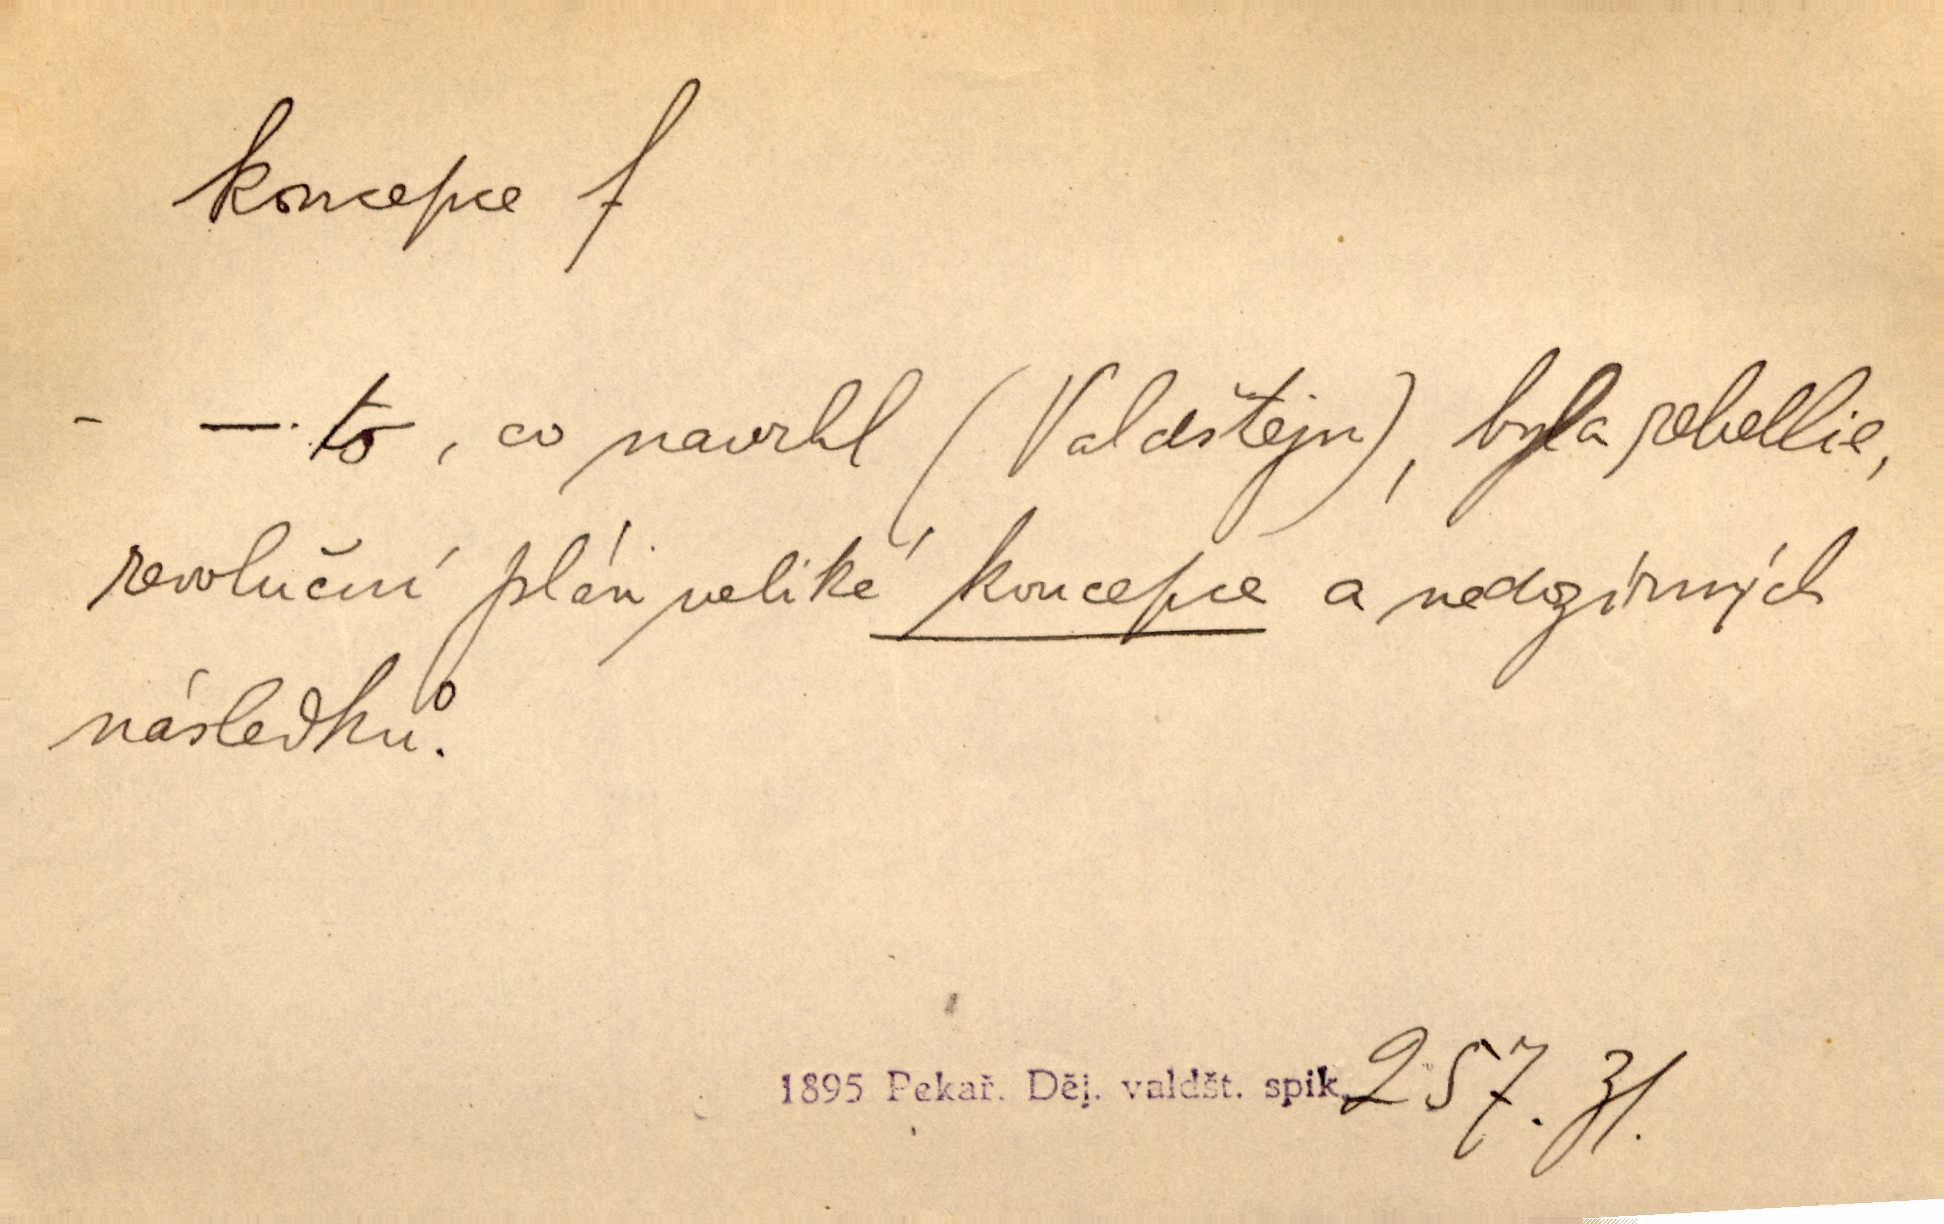 koncepce f
- —. to, co navrhl (Valdštejn), byla rebellie,
revoluční plán veliké koncepce a nedozírných
následků.
1895 Pekař. Děj. valdšt. spik. 257.